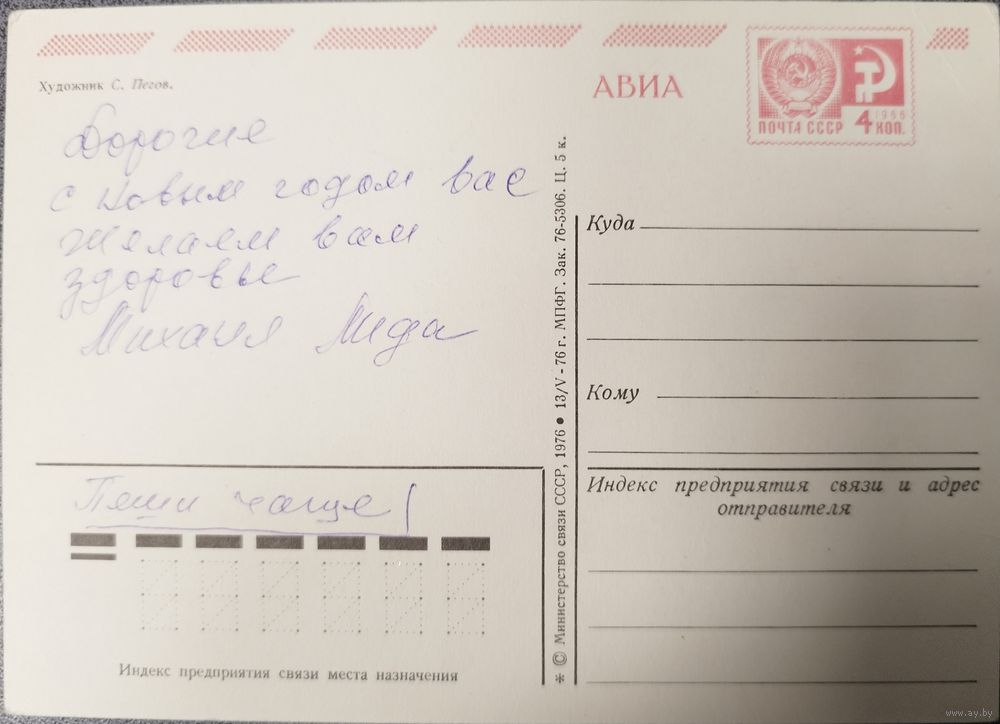 Художник С. Пегов.
АВИА
1966
ПОЧТА СССР 4 КОП.
Дорогие
с новым годом вас
желаем вам
здоровье
Михаил Лида
Пеши чаще!
Куда
Кому
Индекс предприятия связи и адрес
отправителя
Индекс предприятия связи места назначения
* © Министерство связи СССР, 1976 • 13/V-76 г. МПФГ. Зак. 76-5306. Ц. 5 к.
www.ay.by